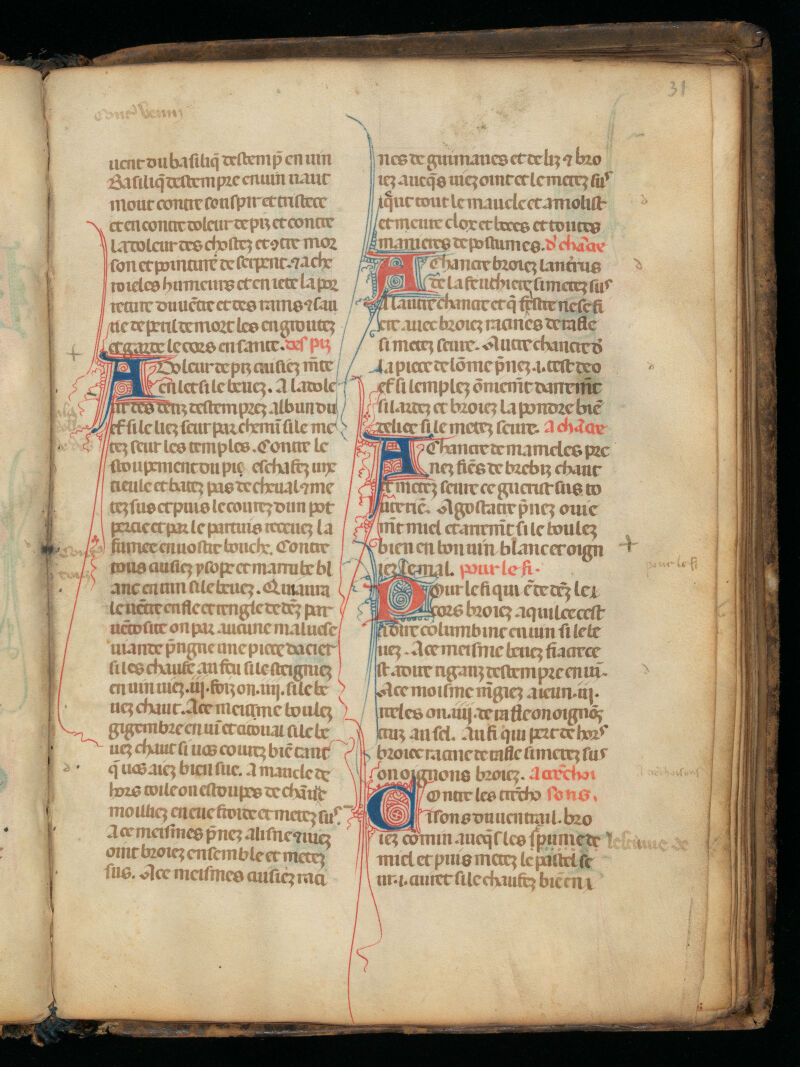 31
uent du basiliq̃ destemp̃ en uin
Basiliq̃ destempre en uin uaut
mout contre souspir et tristece
et en contre doleur de piz et contre
la doleur des costez et ꝯtre mor
son et pointure de serpent. ⁊ a che
les humeurs et en iete la por
reture du uẽtre et des rains ⁊ sau
ue de peril de mort les engroutez
et garde le cors en sante. des piz
A Doleur de piz cuisiez mẽte
en let si le beuez. A la dole
ur des denz destemprez albun du
ef si le liez seur parchemĩ si le me
tez seur les temples. Contre le
stoupement du pie eschafez une
tieule et batez pas de cheual ⁊ me
tez sus et puis le courez dun pot
percie et par le partuis receuez la
fumee en uostre bouche. Contre
tous cuisiez ysope et marrube bl
anc en uin si le beuez. Qui aura
le uẽtre enfle et tengle dedẽz par
uẽtosite ou par aucune maluese
uiande p̃ngne une piece dacier
si les chaufe au feu si le steigniez
en uin uiez .iij. foiz ou .iiij. si le be
uez chaut. Ace meisme boulez
gigembre en uĩ et citoual si le be
uez chaut si uos courez biẽ tant
q̃ uos aiez bien sue. A maucle de
hors toile ou estoupes de chãure
moilliez en eue froide et metez sus.
Ace meismes p̃nez alisne ⁊ uiez
oint broiez ensemble et metez
sus. Ace meismes cuisiez raci
nes de guimaues et de liz ⁊ bro
iez aueq̃s uiez oint et le metez sus
iq̃ut tout le maucle et amolist
et meure clox et boces et toutes
manieres de postumes. d' chãcre
A Chancre broiez lantrus
de la feuchiere si metez sus
A lautre chancre et q̃ festre ne se fi
ere auec broiez racines de rafle
si metez seure. Autre chancre d
la piece de lõme p̃nez .i. test deo
ef si lemplez õniemẽt darremẽt
si lardez et broiez la poudre biẽ
delice si le metez seure. a chãcre
A Chancre de mameles pre
nez fiẽs de brebiz chaut
et metez seure ce guerist sus to
ute riẽ. Agostatre p̃nez ouie
mẽt miel et arremẽt si le boulez
bien en bon uin blanc et oign
iez le mal. pour le fi.
Pour le fi qui ẽ dedẽz le .i.
cors broiez aquilee cest
adire columbine en uin si le be
uez. Ace meisme beuez fiacrece
st adire uiganz destempre en uĩ.
Ace moisme mẽgiez aieun .iij.
iteles ou .iiij. de rafle ou oignõs
cruz au sel. Au fi qui pert dehors
broiez racine de rafle si metez sus
ou oignons broiez. a trẽchoi
Contre les trẽcho sons.
isons du uentrail. bro
iez comin aueq̃s les spume de
miel et puis metez le pastel se
ur .i. auret si le chaufez biẽ en .i.
pour le fi